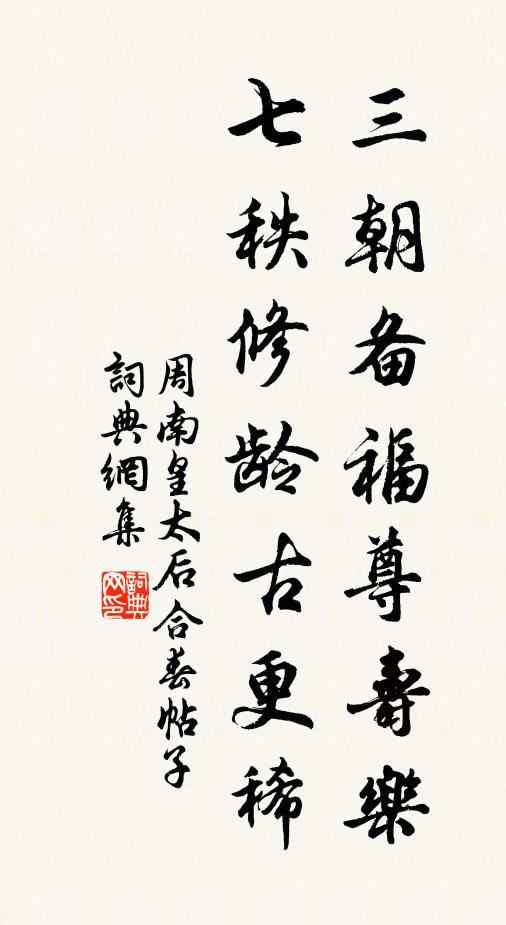 三朝备福尊寿樂
七秩修龄古更稀
周南皇太后合春帖子
詞典網集
詞典网印